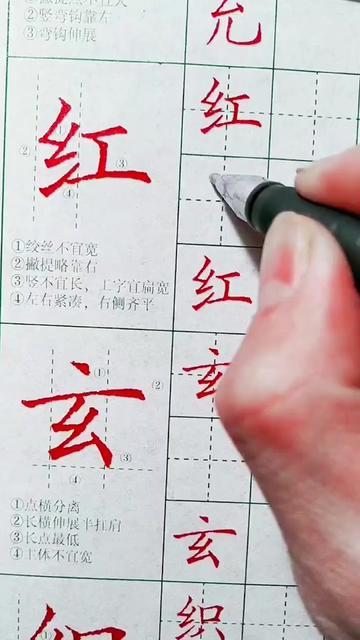 ②竖弯钩靠左
③弯钩伸展
允
红
红
②
①
③
④
①绞丝不宜宽
②撇提略靠右
③竖不宜长，工字宜扁宽
④左右紧凑，右侧齐平
红
玄
玄
①
②
③
④
①点横分离
②长横伸展半扛肩
③长点最低
④主体不宜宽
玄
织
织